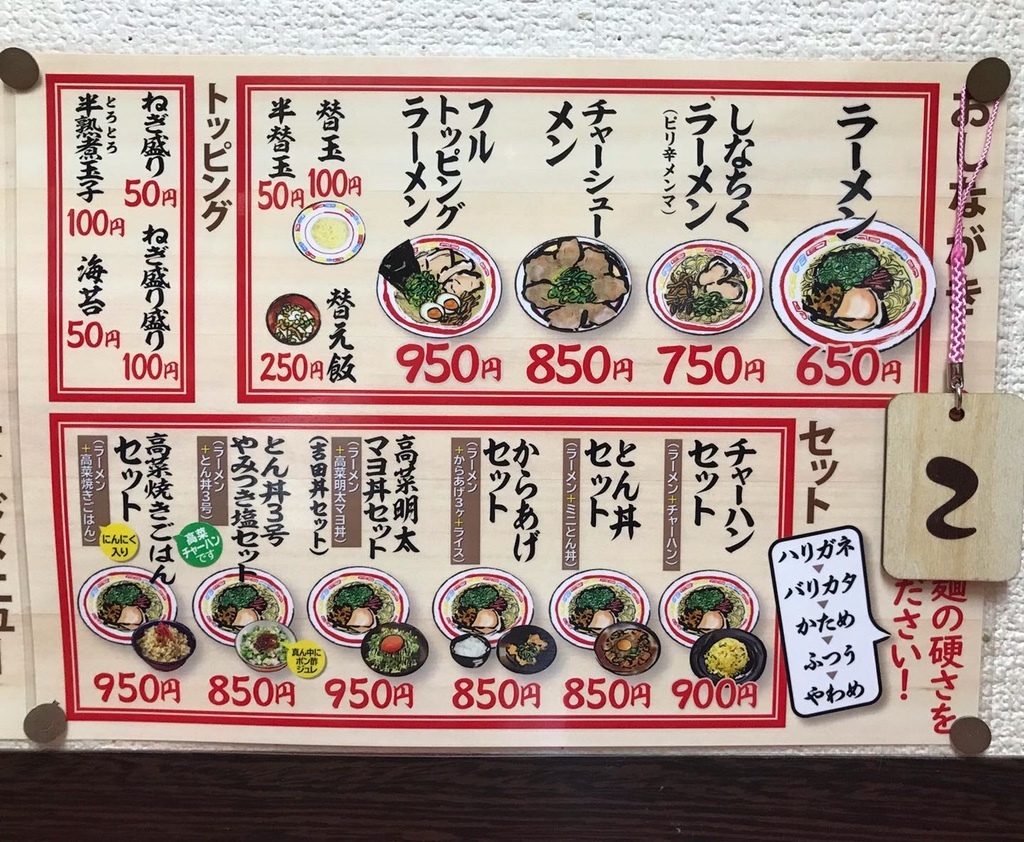 おしながき
ラーメン
650円
しなちく
ラーメン
(ピリ辛メンマ)
750円
チャーシュー
メン
850円
フル
トッピング
ラーメン
950円
替玉
100円
半替玉
50円
替え飯
250円
トッピング
ねぎ盛り
50円
ねぎ盛り盛り
100円
とろとろ
半熟煮玉子
100円
海苔
50円
2
セット
チャーハン
セット
(ラーメン+チャーハン)
900円
とん丼
セット
(ラーメン+ミニとん丼)
850円
からあげ
セット
(ラーメン
+からあげ3ヶ+ライス)
850円
高菜明太
マヨ丼セット
(ラーメン
+高菜明太マヨ丼)
(吉田丼セット)
950円
とん丼3号
やみつき塩セット
(ラーメン
+とん丼3号)
真ん中に
ポン酢
ジュレ
850円
高菜焼きごはん
セット
(ラーメン
+高菜焼きごはん)
にんにく
入り
高菜
チャーハン
です
950円
麺の硬さを
ださい!
ハリガネ
バリカタ
かため
ふつう
やわめ